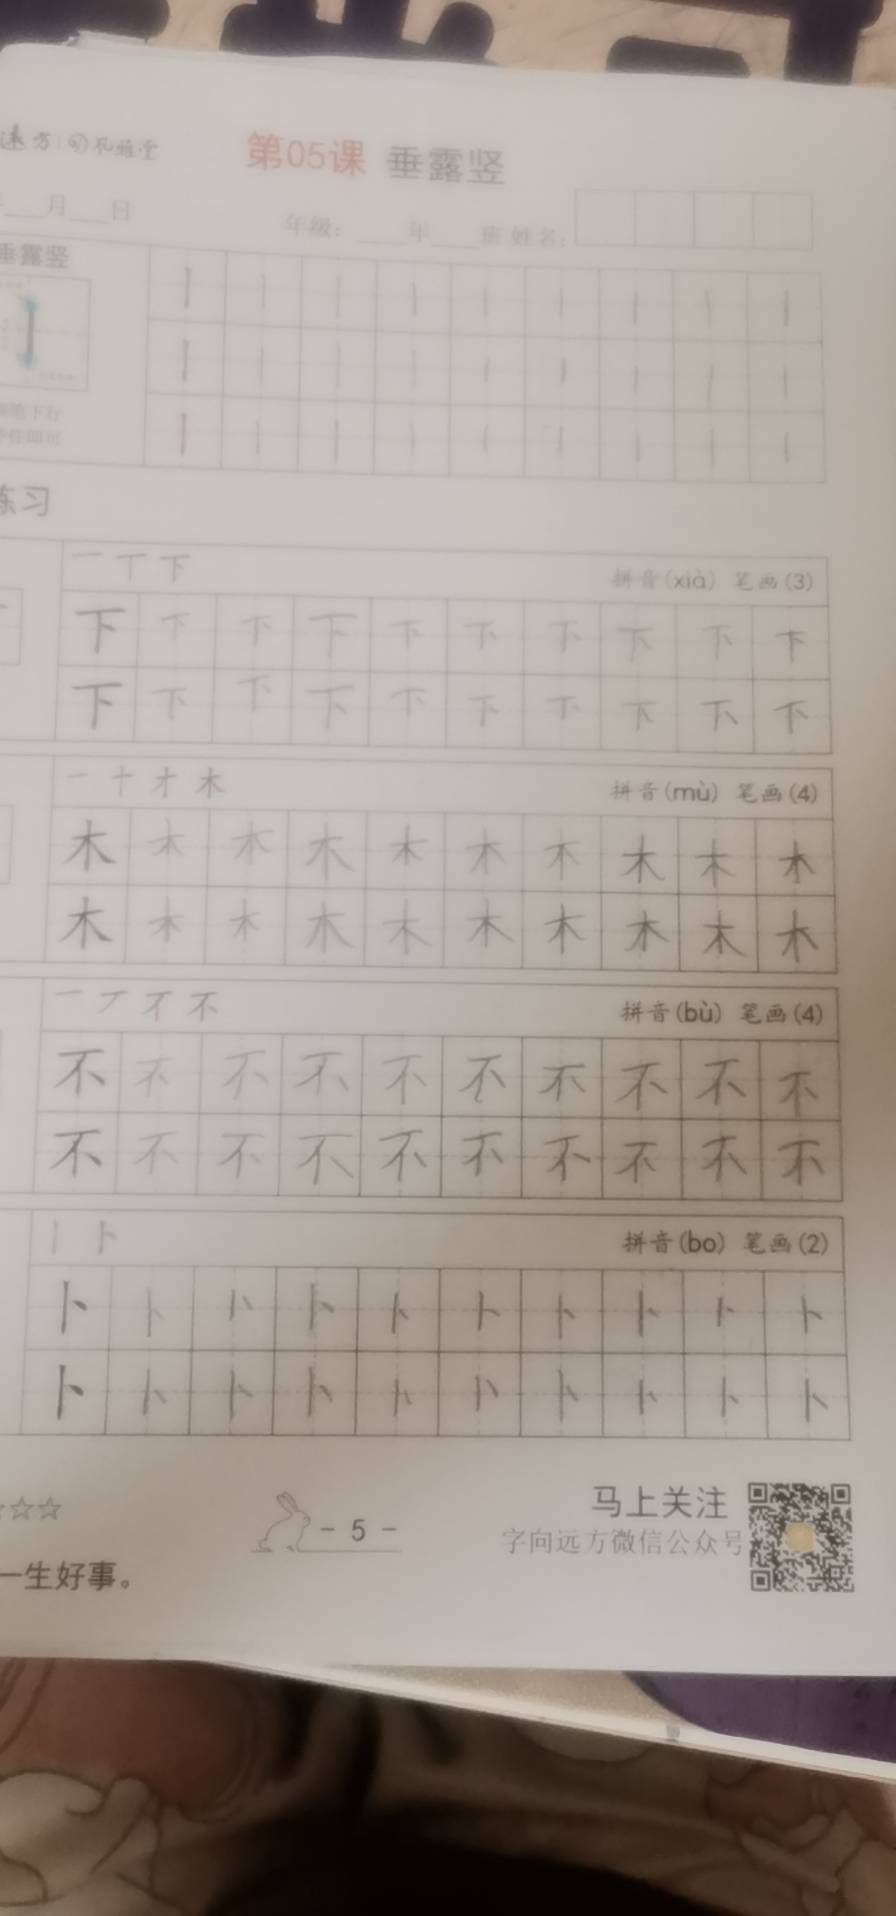 第05课 垂露竖
月 日
年级： 年 班 姓名：
垂露竖
丨 丨 丨 丨 丨 丨 丨 丨 丨
丨 丨 丨 丨 丨 丨 丨 丨 丨
丨 丨 丨 丨 丨 丨 丨 丨 丨
练习
一 丅 下 拼音(xià) 笔画(3)
下 下 下 下 下 下 下 下 下 下
下 下 下 下 下 下 下 下 下 下
一 十 才 木 拼音(mù) 笔画(4)
木 木 木 木 木 木 木 木 木 木
木 木 木 木 木 木 木 木 木 木
一 丆 不 不 拼音(bù) 笔画(4)
不 不 不 不 不 不 不 不 不 不
不 不 不 不 不 不 不 不 不 不
丨 卜 拼音(bo) 笔画(2)
卜 卜 卜 卜 卜 卜 卜 卜 卜 卜
卜 卜 卜 卜 卜 卜 卜 卜 卜 卜
☆☆
- 5 -
马上关注
字向远方微信公众号
一生好事。